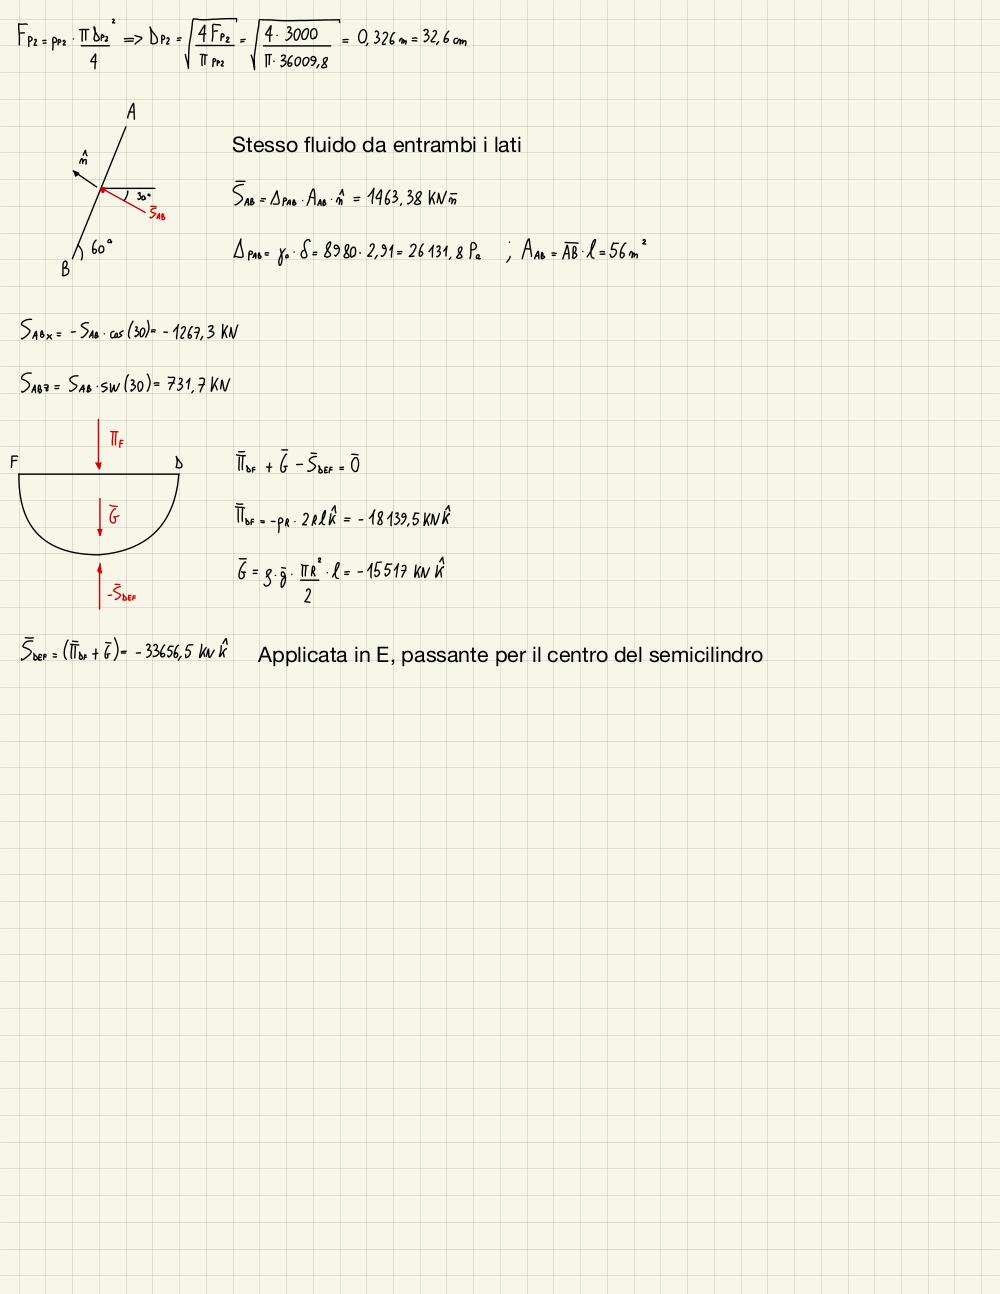 F_P2 = p_P2 · πD_P2²/4 => D_P2 = √(4 F_P2/π p_P2) = √(4 · 3000/π · 36009,8) = 0,326 m = 32,6 cm
A
Stesso fluido da entrambi i lati
n̂
30°
S̄_AB
S̄_AB = Δp_AB · A_AB · n̂ = 1463,38 KN n̄
60°
B
Δp_AB = γ₀ · δ = 8980 · 2,91 = 26131,8 Pa ; A_AB = A̅B̅ · l = 56 m²
S_ABx = - S_AB · cos(30) = - 1267,3 KN
S_ABz = S_AB · sin(30) = 731,7 KN
π_F
F D
Π̄_DF + Ḡ - S̄_DEF = 0̄
Ḡ
Π̄_DF = -p_R · 2 R l k̂ = - 18139,5 KN k̂
Ḡ = ρ · ḡ · πR²/2 · l = - 15517 KN k̂
-S̄_DEF
S̄_DEF = (Π̄_DF + Ḡ) = - 33656,5 KN k̂ Applicata in E, passante per il centro del semicilindro